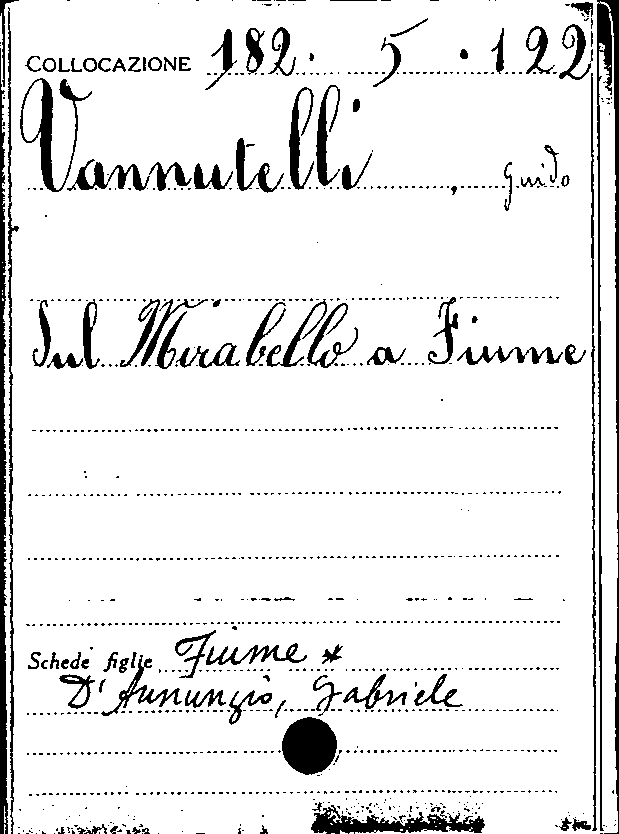 COLLOCAZIONE 182. 5. 122
Vannutelli, Guido
Sul Mirabello a Fiume
Schede figlie Fiume *
D'Annunzio, Gabriele